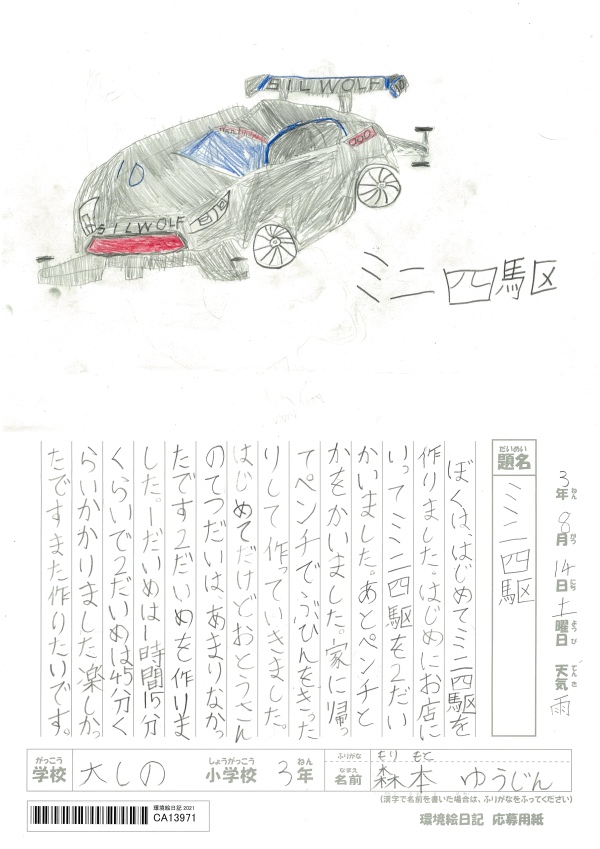 SILWOLF 10
10
SILWOLF
ミニ四駆
3年 8月 14日 土曜日 天気 雨
ねん がつ にち ようび てんき
だいめい
題名 ミニ四駆
ぼくは、はじめてミニ四駆を
作りました。はじめにお店に
いってミニ四駆を2だい
かいました。あとペンチと
かをかいました。家に帰っ
てペンチでぶひんをきった
りして作っていきました。
はじめてだけどおとうさん
のてつだいは、あまりなかっ
たです2だいめを作りま
した。一だいめは1時間15分
くらいで2だいめは45分く
らいかかりました楽しかっ
たですまた作りたいです。
がっこう しょうがっこう ねん
学校 大しの 小学校 3年
ふりがな もり もと
なまえ
名前 森本 ゆうじん
(漢字で名前を書いた場合は、ふりがなをふってください)
環境絵日記 2021
CA13971
環境絵日記 応募用紙